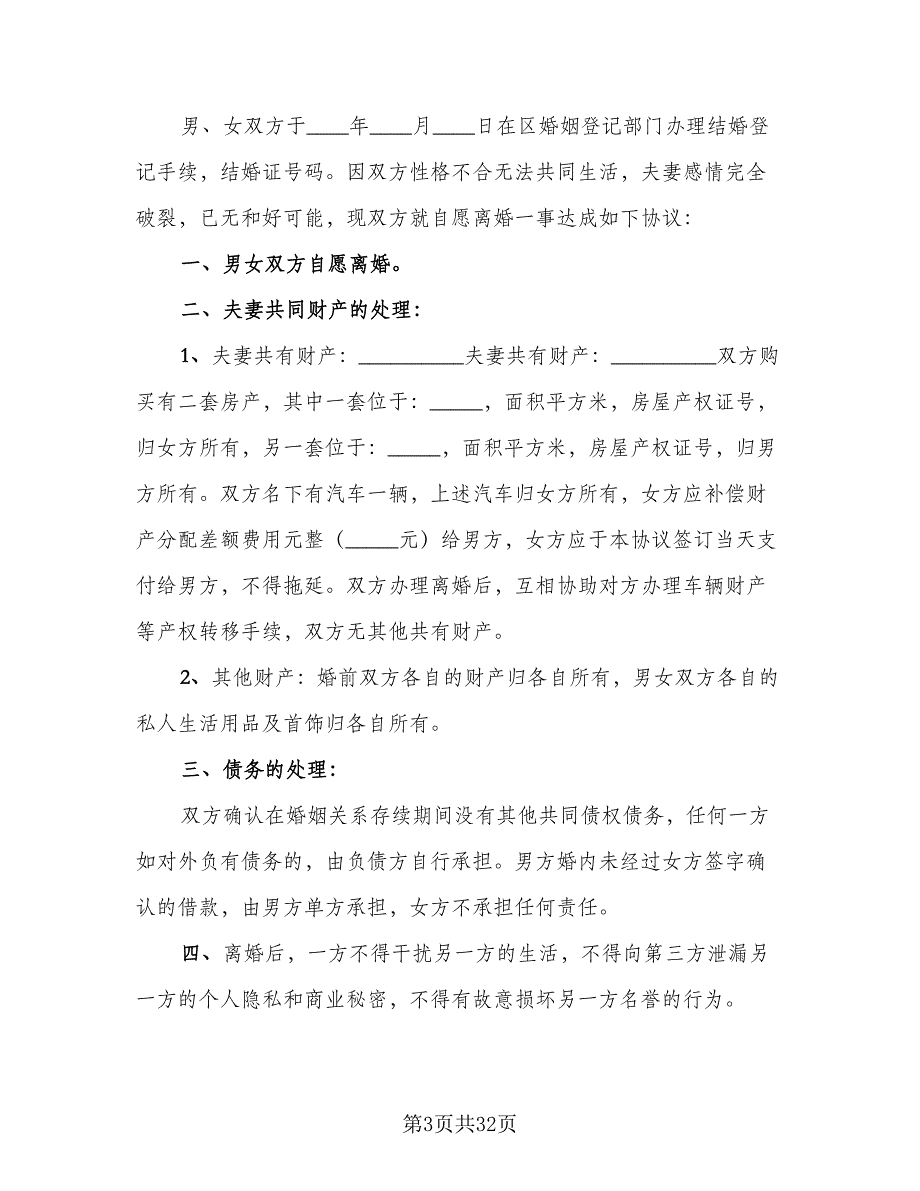 男、女双方于____年____月____日在区婚姻登记部门办理结婚登
记手续，结婚证号码。因双方性格不合无法共同生活，夫妻感情完全
破裂，已无和好可能，现双方就自愿离婚一事达成如下协议：
一、男女双方自愿离婚。
二、夫妻共同财产的处理：
1、夫妻共有财产：__________夫妻共有财产：__________双方购
买有二套房产，其中一套位于：_____，面积平方米，房屋产权证号，
归女方所有，另一套位于：_____，面积平方米，房屋产权证号，归男
方所有。双方名下有汽车一辆，上述汽车归女方所有，女方应补偿财
产分配差额费用元整（_____元）给男方，女方应于本协议签订当天支
付给男方，不得拖延。双方办理离婚后，互相协助对方办理车辆财产
等产权转移手续，双方无其他共有财产。
2、其他财产：婚前双方各自的财产归各自所有，男女双方各自的
私人生活用品及首饰归各自所有。
三、债务的处理：
双方确认在婚姻关系存续期间没有其他共同债权债务，任何一方
如对外负有债务的，由负债方自行承担。男方婚内未经过女方签字确
认的借款，由男方单方承担，女方不承担任何责任。
四、离婚后，一方不得干扰另一方的生活，不得向第三方泄漏另
一方的个人隐私和商业秘密，不得有故意损坏另一方名誉的行为。
第3页共32页